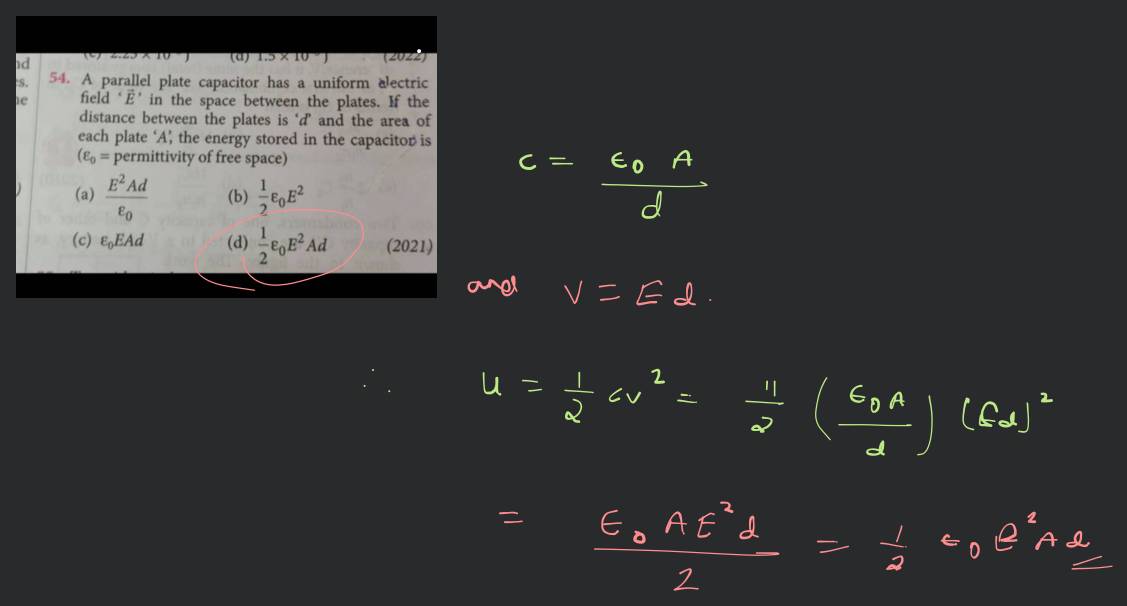 (c) 2.25 × 10 J (d) 1.5 × 10 J (2022)
nd
es.
he
54. A parallel plate capacitor has a uniform electric
field ‘E⃗’ in the space between the plates. If the
distance between the plates is ‘d’ and the area of
each plate ‘A’, the energy stored in the capacitor is
(ε₀ = permittivity of free space)
(a) E²Ad/ε₀ (b) 1/2 ε₀E²
(c) ε₀EAd (d) 1/2 ε₀E²Ad (2021)
c = ε₀ A / d
and V = Ed.
∴ u = 1/2 cv² = 11/2 (ε₀A/d) (Ed)²
= ε₀AE²d/2 = 1/2 ε₀E²Ad